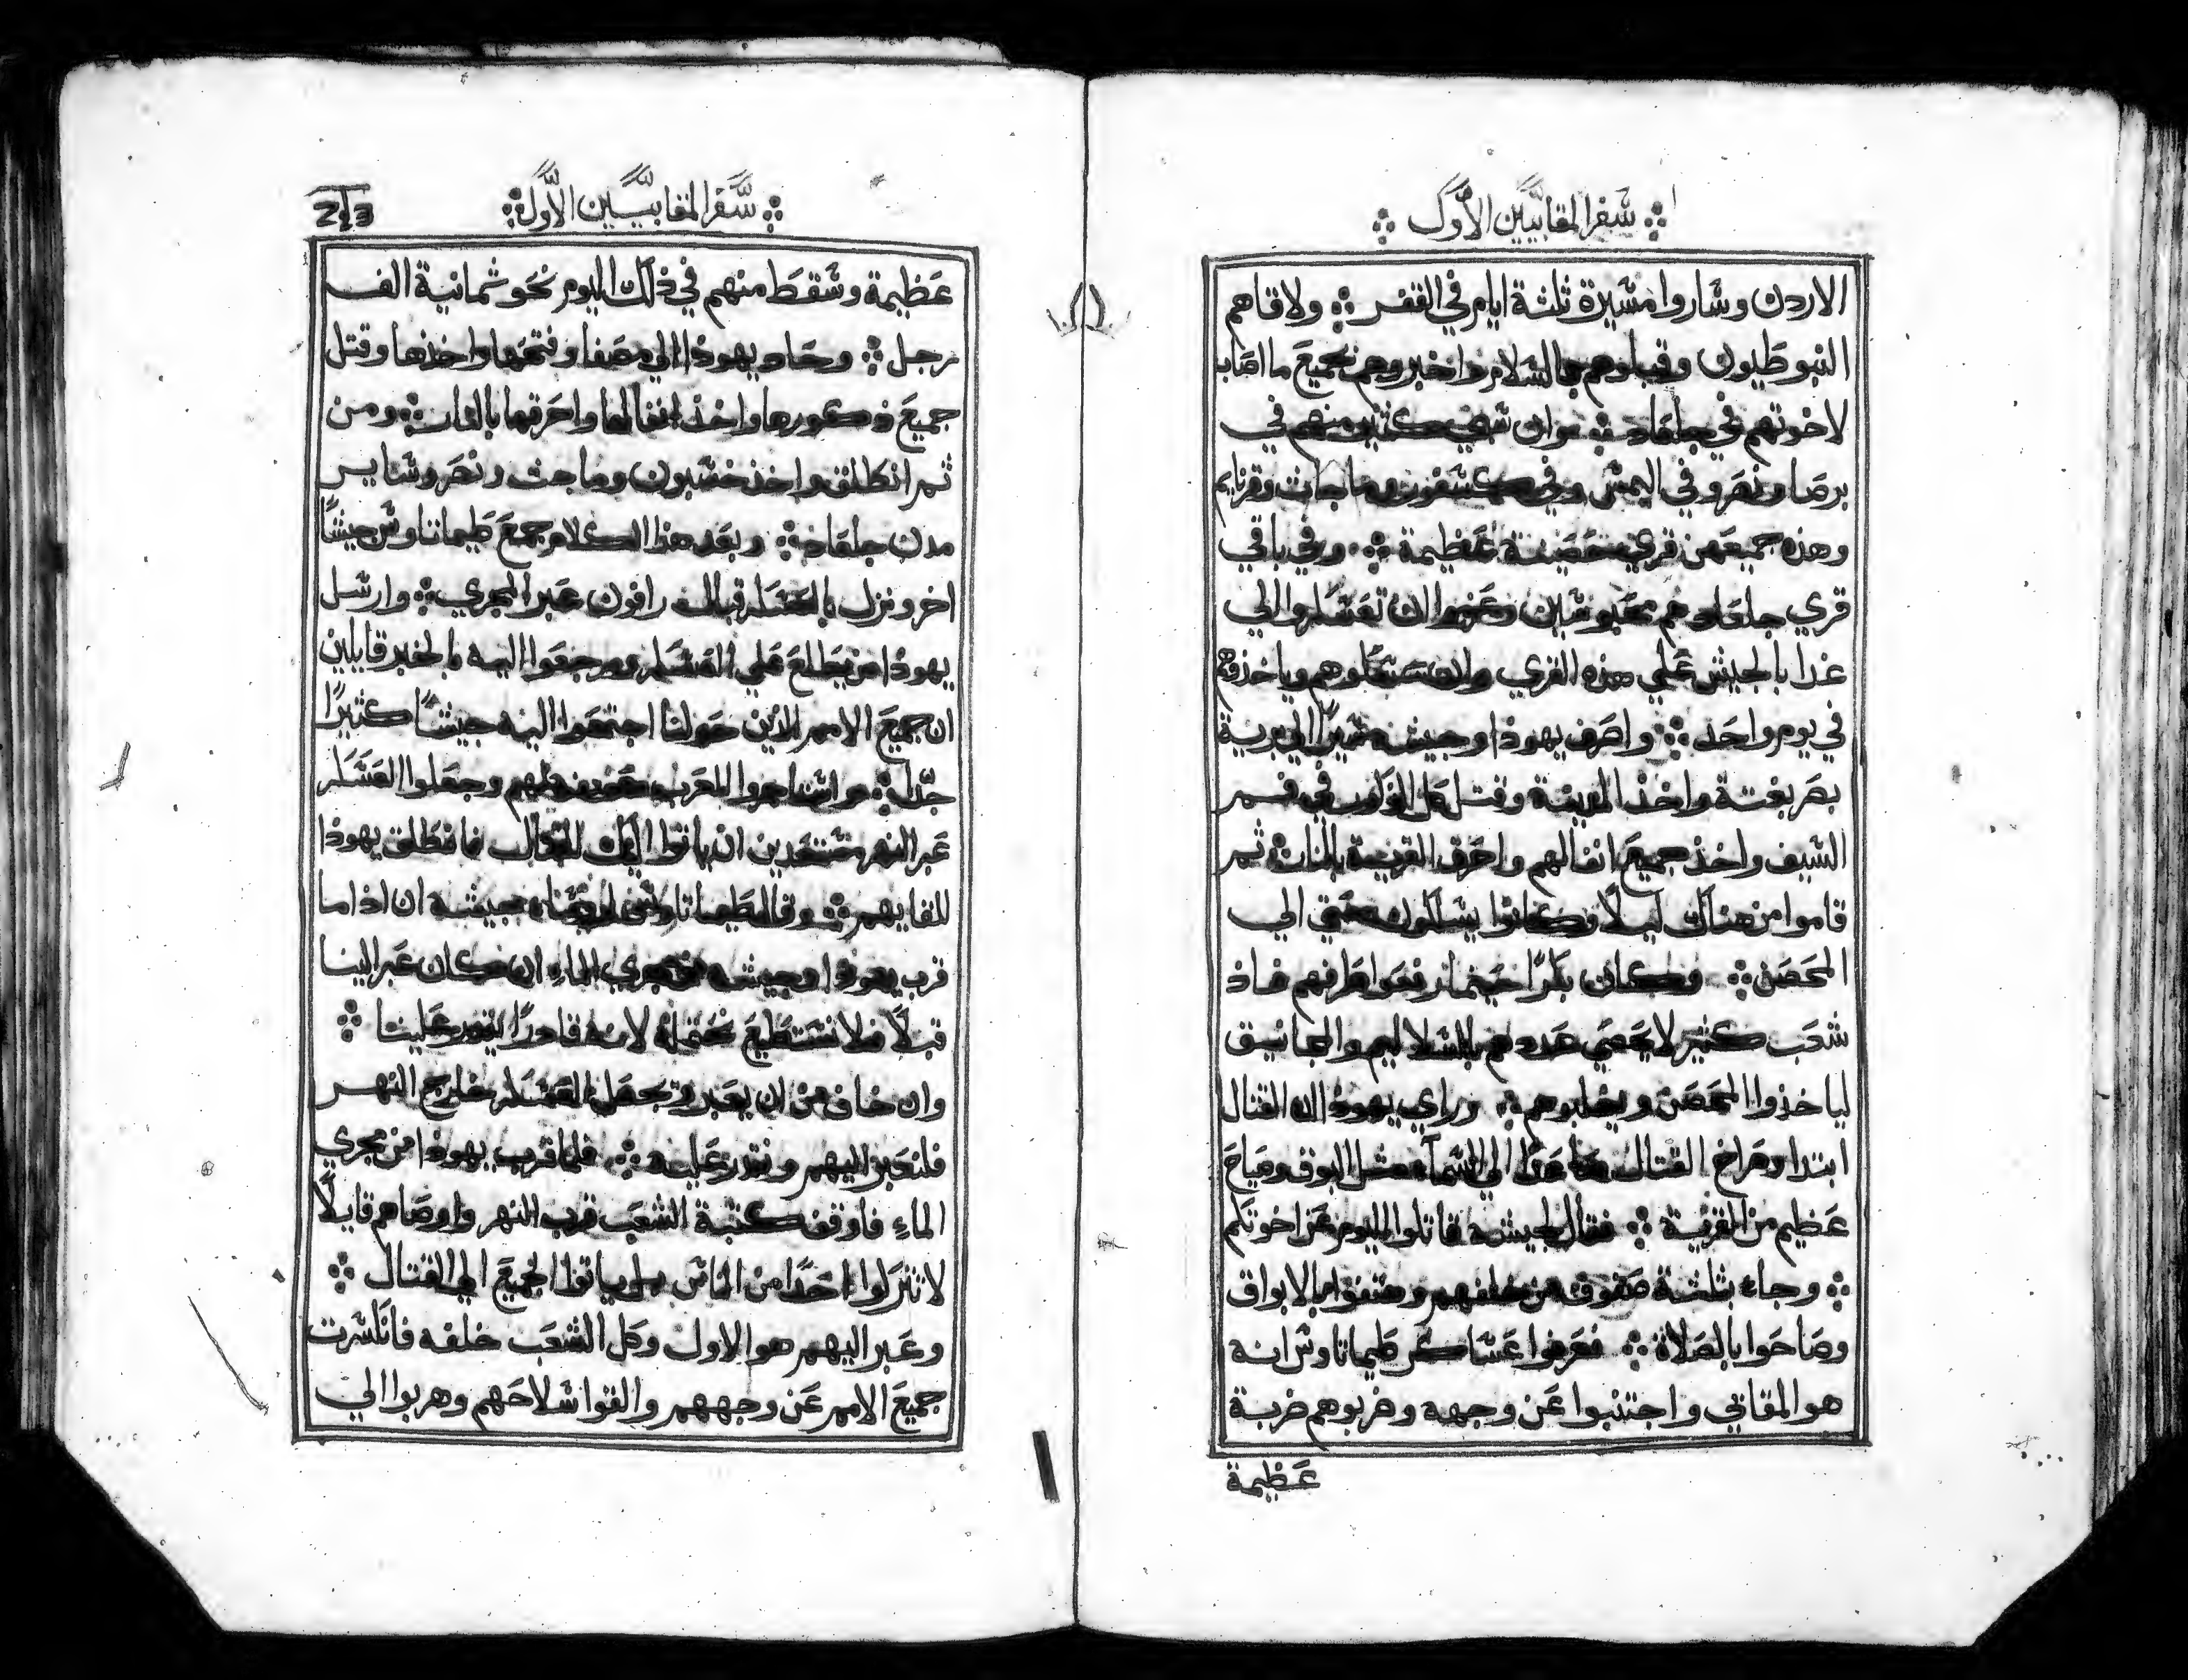 سفر المقابيين الأول
الاردن وساروا مسيرة ثلثة ايام في القفر ولاقاهم
النبوطيون وقبلوهم بالسلام واخبروهم بجميع ما اصاب
لاخوتهم في جلعاد وان كثيرين منهم في
برصا ونصرو في اليمس وفي كسفون وماجات وقرنايم
وهذه جميعهن قري حصينة عظيمة وفي باقي
قري جلعاد هم محبوسين وعزموا ان العسكر الي
غدا بالجيش علي هذه القري وياخذوهم
في يوم واحد واصرف يهوذا وجيشه الي برية
بصر بغتة واخذ المدينة وقتل كل الذكور في فم
السيف واخذ جميع انفالهم واحرق القرية بالنار ثم
قاموا من هناك ليلاً وكانوا يسلكون حتي الي
المحصن وكان بكرًا حينما رفعوا اطرافهم فاذ
شعب كثير لا يحصي عددهم بالسلاليم والمجانيق
لياخذوا المحصن ويغلبوهم وراي يهوذا ان القتال
ابتدا وصراخ القتال صاعدًا الي السمآء مثل البوق وصياح
عظيم من القرية فقال لجيشه قاتلوا اليوم عن اخوتكم
وجاء بثلثة صفوف من خلفهم وهتفوا بالابواق
وصاحوا بالصلاة فعرفوا عساكر طيماتاوس انه
هو المقابي واجتنبوا عن وجهه وضربوهم ضربة
عظيمة
سفر المقابيين الأول
عظيمة وسقط منهم في ذلك اليوم نحو ثمانية الف
رجل وحاد يهوذا الي مصفا وفتحها واخذها وقتل
جميع ذكورها واخذ انفالها واحرقها بالنار ومن
ثم انطلق واخذ خسبون وماجت ونصر وساير
مدن جلعاد وبعد هذا الكلام جمع طيماتاوس جيشًا
اخر ونزل بالعسكر قبالت رافون عبر المجري وارسل
يهوذا من يطلع علي العسكر ورجعوا اليه بالخبر قايلين
ان جميع الامم الذين حولنا اجتمعوا اليه جيشًا كثيرًا
جدًا واستاجروا العرب لهم وجعلوا العسكر
عبر النهر مستعدين ان ياتوا اليك للقتال فانطلق يهوذا
للقايهم وقال طيماتاوس لروسا جيشه ان اذا ما
قرب يهوذا وجيشه من مجري الماء ان كان عبر الينا
قبلًا فلا نستطيع نحتمله لانه قادرًا يقدر علينا
وان خاف من ان يعبر ويجعل العسكر خارج النهر
فلنعبر اليهم ونقدر عليه فلما قرب يهوذا من مجري
الماءِ فاوقف كتبة الشعب قرب النهر واوصاهم قايلًا
لا تتركوا احدًا من الناس بل ياتوا الجميع الي القتال
وعبر اليهم هو الاول وكل الشعب خلفه فانكسرت
جميع الامم عن وجههم والقوا سلاحهم وهربوا الي